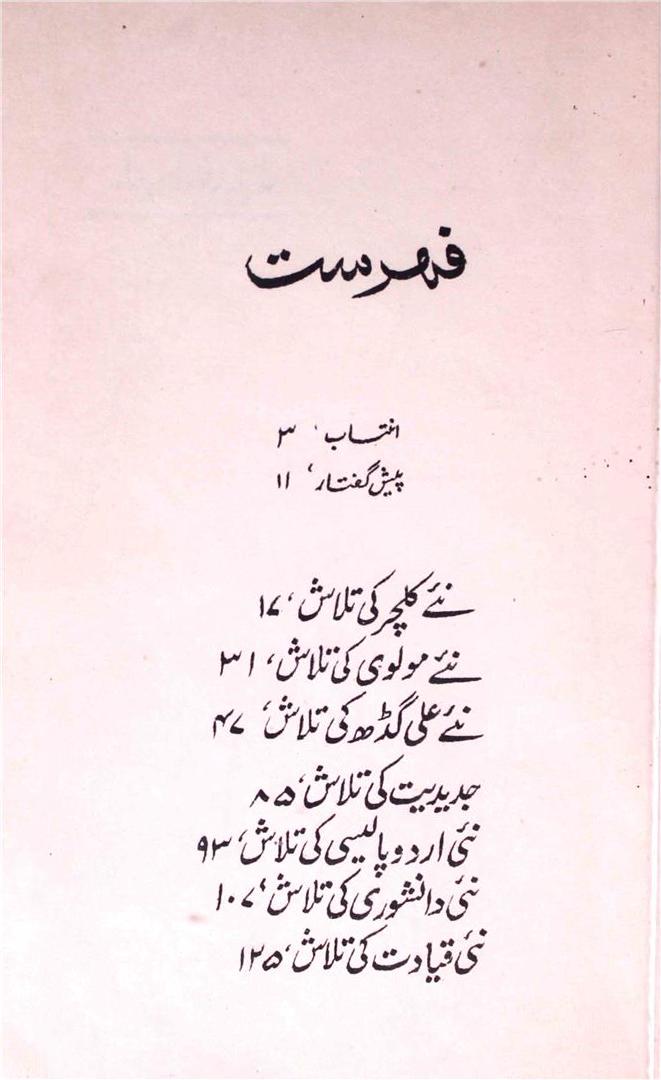 فہرست
انتساب، ۳
پیش گفتار، ۱۱
نئے کلچر کی تلاش، ۱۷
نئے مولوی کی تلاش، ۳۱
نئے علی گڈھ کی تلاش، ۴۷
جدیدیت کی تلاش، ۸۵
نئی اردو پالیسی کی تلاش، ۹۳
نئی دانشوری کی تلاش، ۱۰۷
نئی قیادت کی تلاش، ۱۲۵